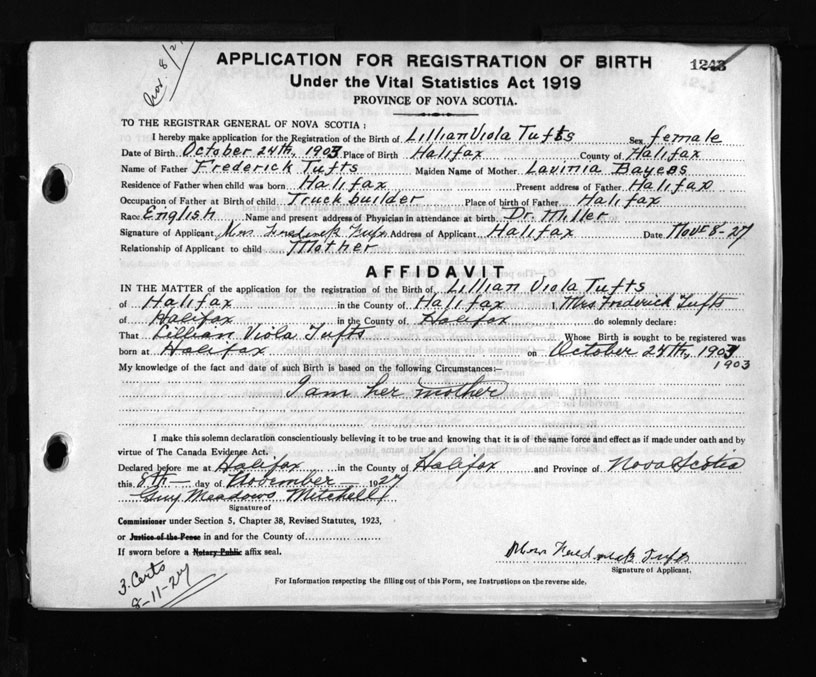 Nov. 8/27
APPLICATION FOR REGISTRATION OF BIRTH
1243
Under the Vital Statistics Act 1919
PROVINCE OF NOVA SCOTIA.
TO THE REGISTRAR GENERAL OF NOVA SCOTIA :
I hereby make application for the Registration of the Birth of Lillian Viola Tufts Sex female
Date of Birth October 24th, 1903 Place of Birth Halifax County of Halifax
Name of Father Frederick Tufts Maiden Name of Mother Lavinia Bayers
Residence of Father when child was born Halifax Present address of Father Halifax
Occupation of Father at Birth of Child Truck builder Place of birth of Father Halifax
Race English Name and present address of Physician in attendance at birth Dr. Miller
Signature of Applicant Mrs Frederick Tufts Address of Applicant Halifax Date Nov 8-27
Relationship of Applicant to child Mother
AFFIDAVIT
IN THE MATTER of the application for the registration of the Birth of Lillian Viola Tufts
of Halifax in the County of Halifax I Mrs. Frederick Tufts
of Halifax in the County of Halifax do solemnly declare:
That Lillian Viola Tufts Whose Birth is sought to be registered was
born at Halifax on October 24th, 1903
1903
My knowledge of the fact and date of such Birth is based on the following Circumstances:—
I am her mother
I make this solemn declaration conscientiously believing it to be true and knowing that it is of the same force and effect as if made under oath and by
virtue of The Canada Evidence Act.
Declared before me at Halifax in the County of Halifax and Province of Nova Scotia
this 8th day of November 1927
Guy Meadows Mitchell
Signature of
Commissioner under Section 5, Chapter 38, Revised Statutes, 1923,
or Justice of the Peace in and for the County of
If sworn before a Notary Public affix seal.
Mrs Frederick Tufts
Signature of Applicant.
3. Certs
8-11-27
For Information respecting the filling out of this Form, see Instructions on the reverse side.